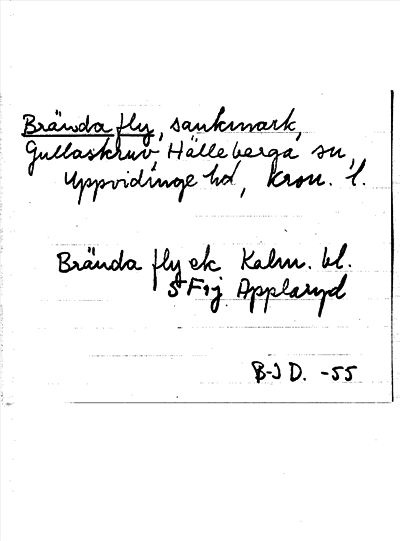 Brända fly, sankmark,
Gullaskruv, Hälleberga sn,
Uppvidinge hd, Kron. l.
Brända fly ek Kalm. bl.
5 F1j Applaryd
B-J D. -55